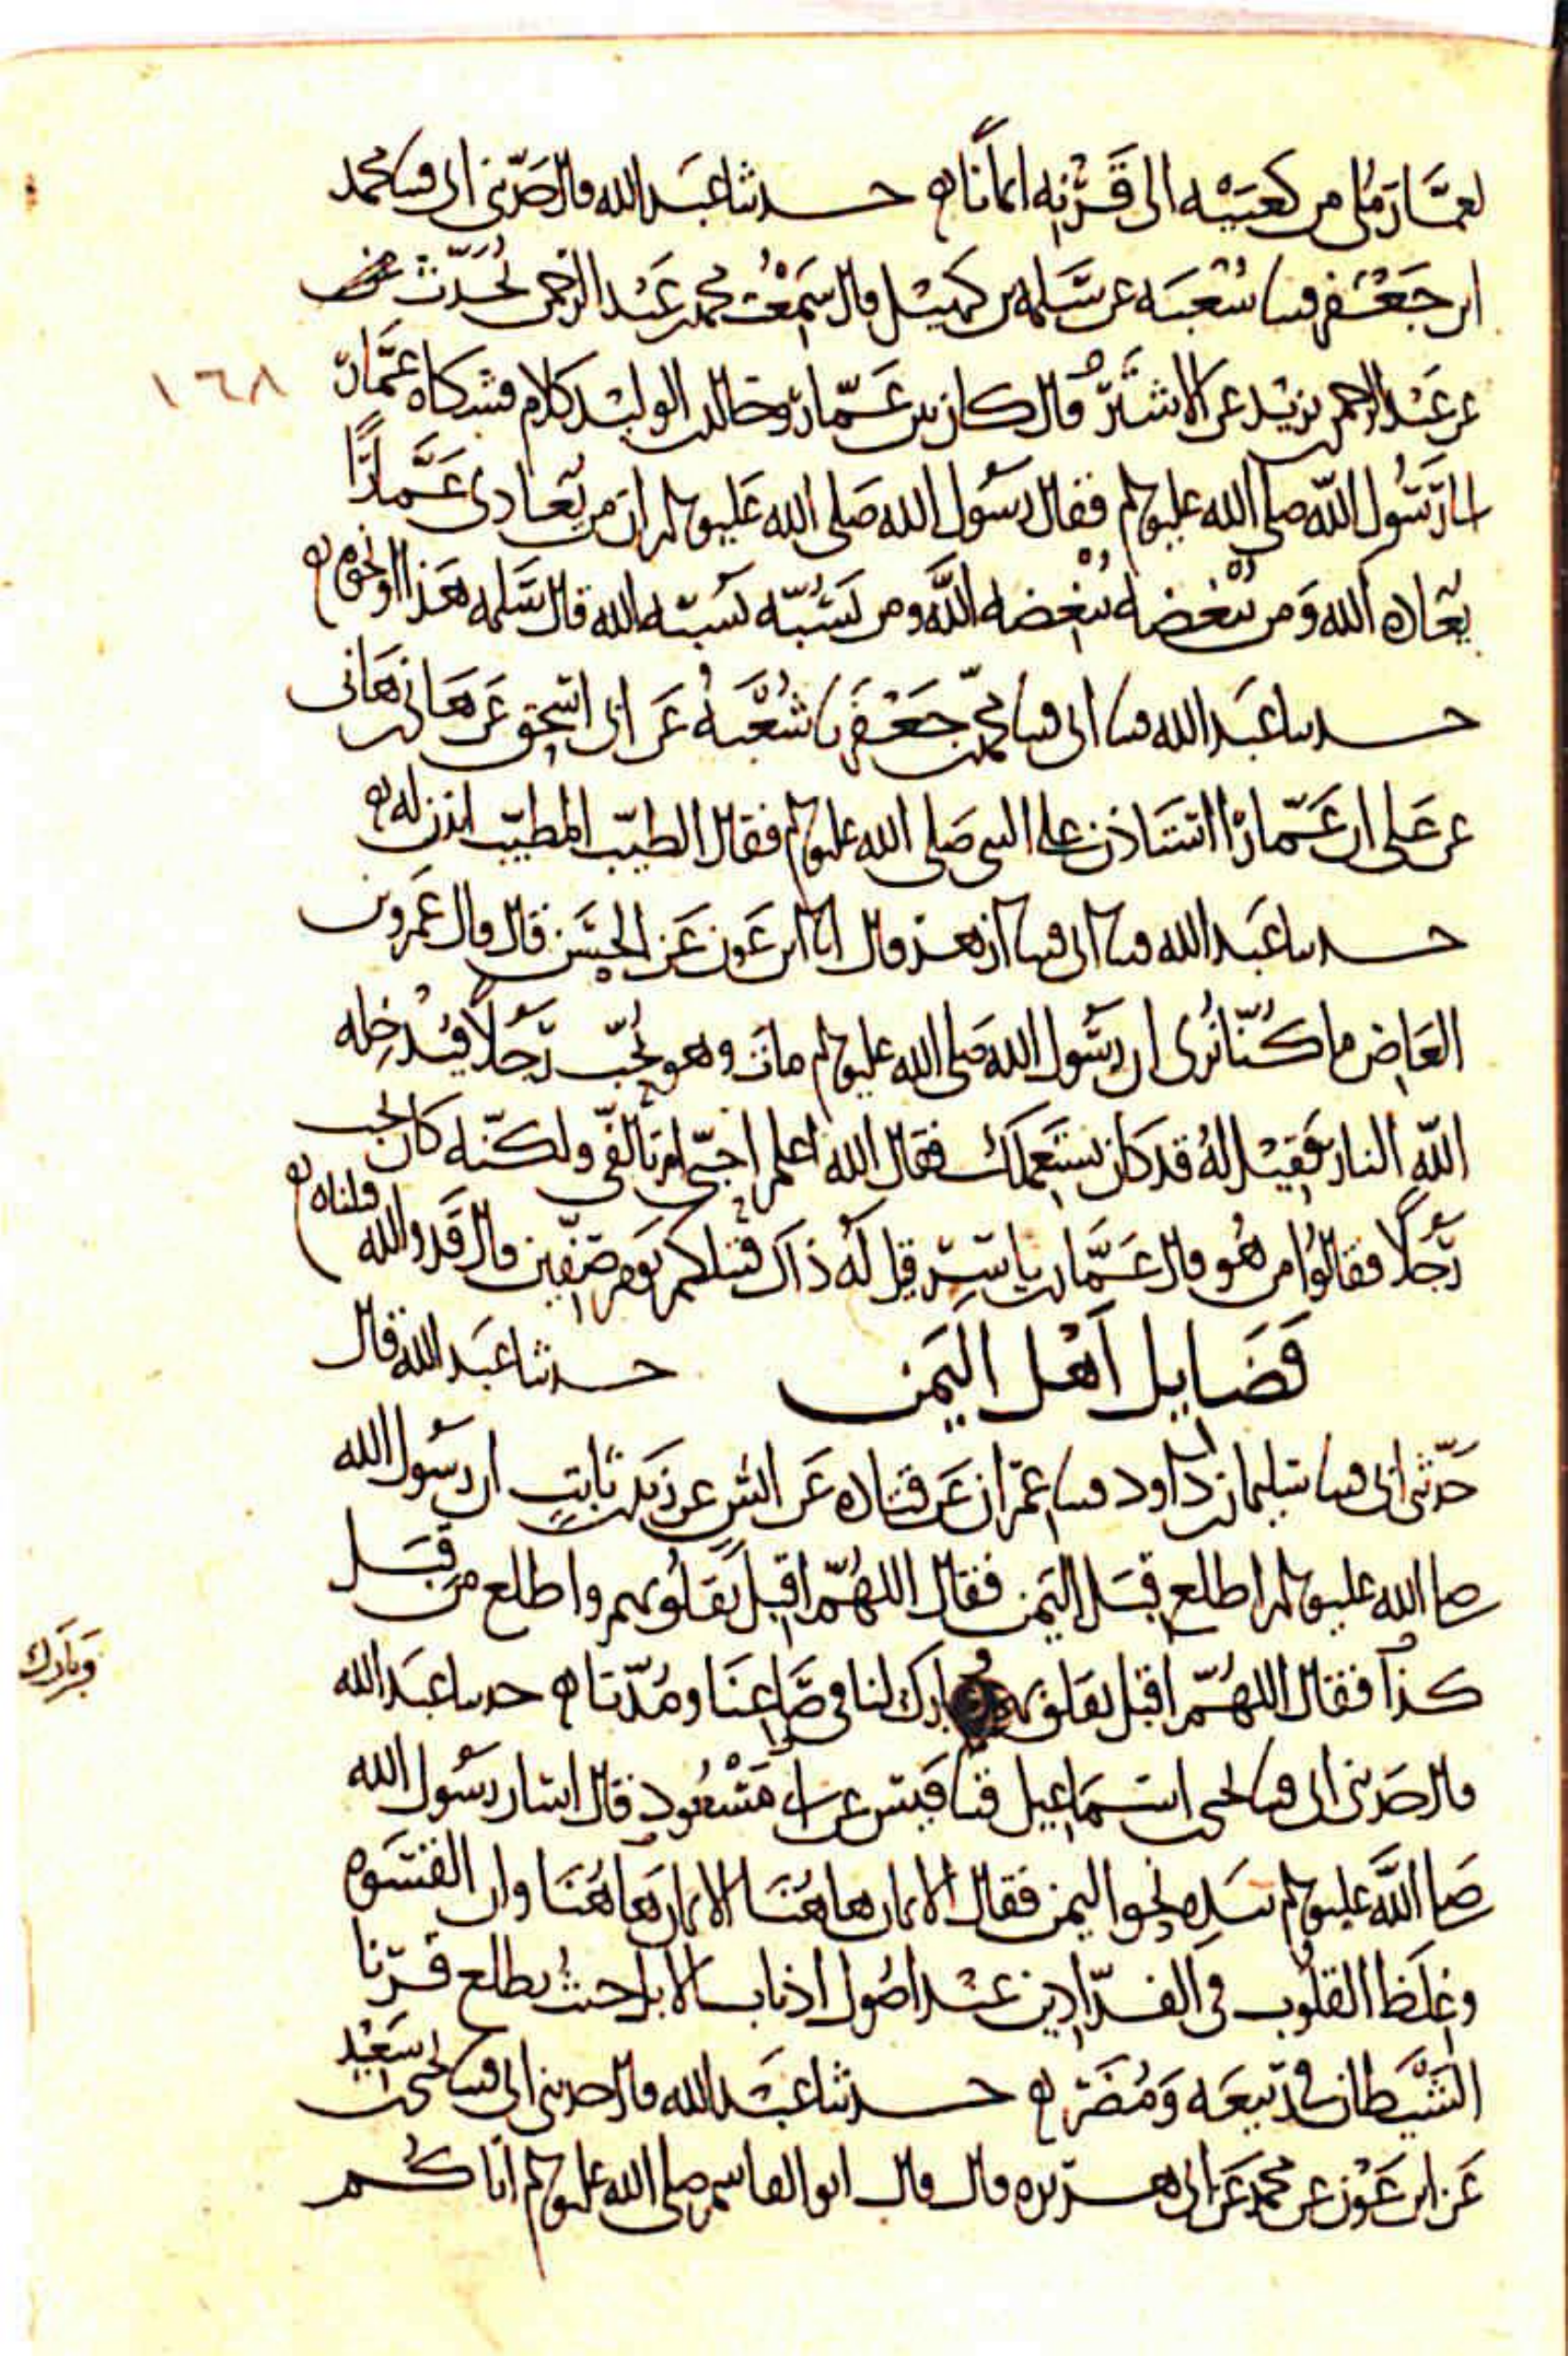 لعمار ملى من كعبيه الى قرنه ايمانا ه حدثنا عبد الله قال حدثني ابي قثنا محمد
ابن جعفر قثنا شعبه عن سلمه بن كهيل قال سمعت محمد بن عبد الرحمن يحدث
عن عبد الرحمن بن يزيد عن الاشتر قال كان بين عمار وخالد بن الوليد كلام فشكاه عمار
١٦٨
الى رسول الله صلى الله عليه وسلم فقال رسول الله صلى الله عليه وسلم انه من يعادى عمارا
يعاده الله ومن يبغضه يبغضه الله ومن يسبه يسبه الله قال سلمه هذا او نحوه ه
حدثنا عبد الله قثنا ابي قثنا محمد بن جعفر نا شعبه عن ابي اسحق عن هاني بن هانى
عن على ان عمارا استاذن على النبي صلى الله عليه وسلم فقال الطيب المطيب ايذن له ه
حدثنا عبد الله قثنا ابي قثنا ازهر قال انا ابن عون عن الحسن قال قال عمرو بن
العاص ما كنا نرى ان رسول الله صلى الله عليه وسلم مات وهو يحب رجلا فيدخله
الله النار فقيل له قد كان يستعملك فقال الله اعلم احبني ام تالفني ولكنه كان يحب
رجلا فقالوا من هو قال عمار بن ياسر قيل له ذاك قتيلكم يوم صفين قال قد والله قتلناه ه
فضايل اهل اليمن حدثنا عبد الله قال
حدثني ابي قثنا سليمان بن داود قثنا عمران عن قتاده عن انس عن زيد بن ثابت ان رسول الله
صلى الله عليه وسلم اطلع قبل اليمن فقال اللهم اقبل بقلوبهم واطلع من قبل
كذا فقال اللهم اقبل بقلوبهم وبارك لنا في صاعنا ومدنا ه حدثنا عبد الله
وبارك
قال حدثني ابي قثنا يحيى عن اسماعيل قثنا قيس عن ابي مسعود قال اشار رسول الله
صلى الله عليه وسلم بيده نحو اليمن فقال الايمان هاهنا الايمان هاهنا وان القسوه
وغلظ القلوب في الفدادين عند اصول اذناب الابل حيث يطلع قرنا
الشيطان في ربيعه ومضر ه حدثنا عبد الله قال حدثني ابي قثنا يحيى بن سعيد
عن ابن عون عن محمد عن ابي هريره قال قال ابو القاسم صلى الله عليه وسلم اتاكم